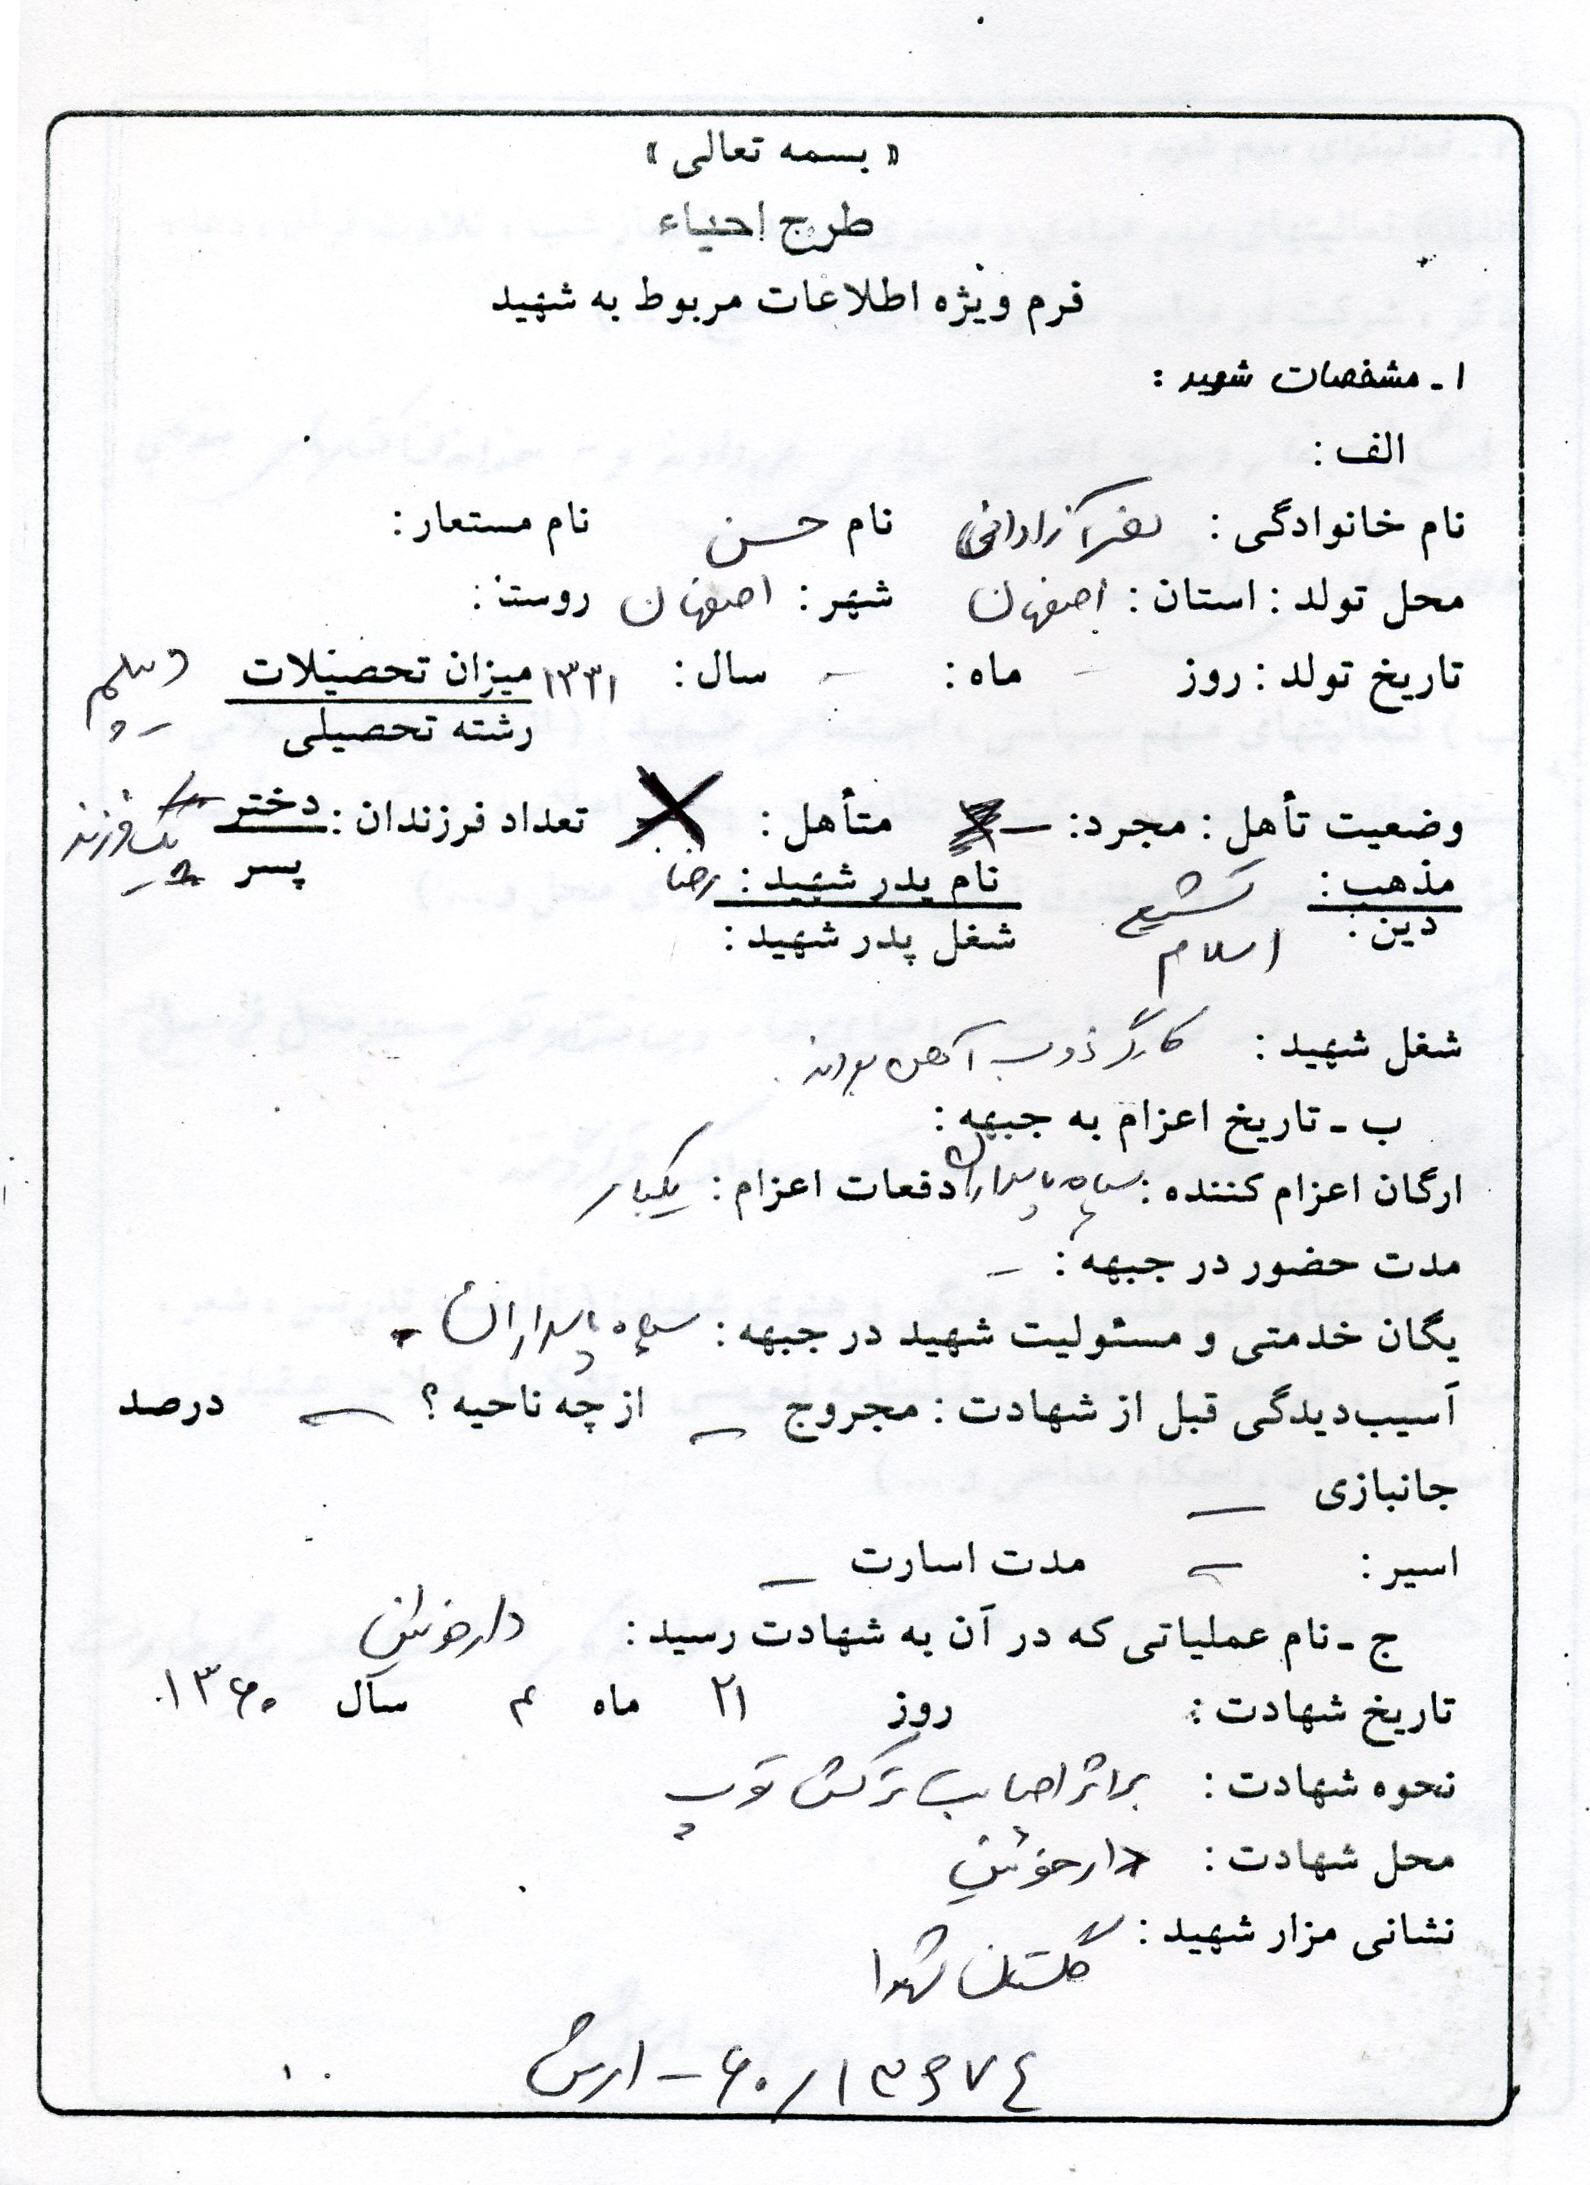 « بسمه تعالی »
طرح احیاء
فرم ویژه اطلاعات مربوط به شهید
۱ ـ مشخصات شهید :
الف :
نام خانوادگی : نصر آزادانی نام حسن نام مستعار :
محل تولد : استان : اصفهان شهر : اصفهان روستا :
تاریخ تولد : روز - ماه : - سال : ۱۳۳۱ میزان تحصیلات دیپلم
رشته تحصیلی -
وضعیت تأهل : مجرد : - متأهل : X تعداد فرزندان : دختر یک فرزند
پسر
مذهب : تشیع نام پدر شهید : رضا
دین : اسلام شغل پدر شهید :
شغل شهید : کارگر ذوب آهن بودند .
ب ـ تاریخ اعزام به جبهه :
ارگان اعزام کننده : سپاه پاسداران دفعات اعزام : یکبار
مدت حضور در جبهه : -
یگان خدمتی و مسئولیت شهید در جبهه : سپاه پاسداران -
آسیب‌دیدگی قبل از شهادت : مجروح - از چه ناحیه ؟ - درصد
جانبازی -
اسیر : - مدت اسارت -
ج ـ نام عملیاتی که در آن به شهادت رسید : دارخوئین
تاریخ شهادت : روز ۲۱ ماه ۳ سال ۱۳۶۰
نحوه شهادت : براثر اصابت ترکش توپ
محل شهادت : دارخوئین
نشانی مزار شهید :
گلستان شهدا